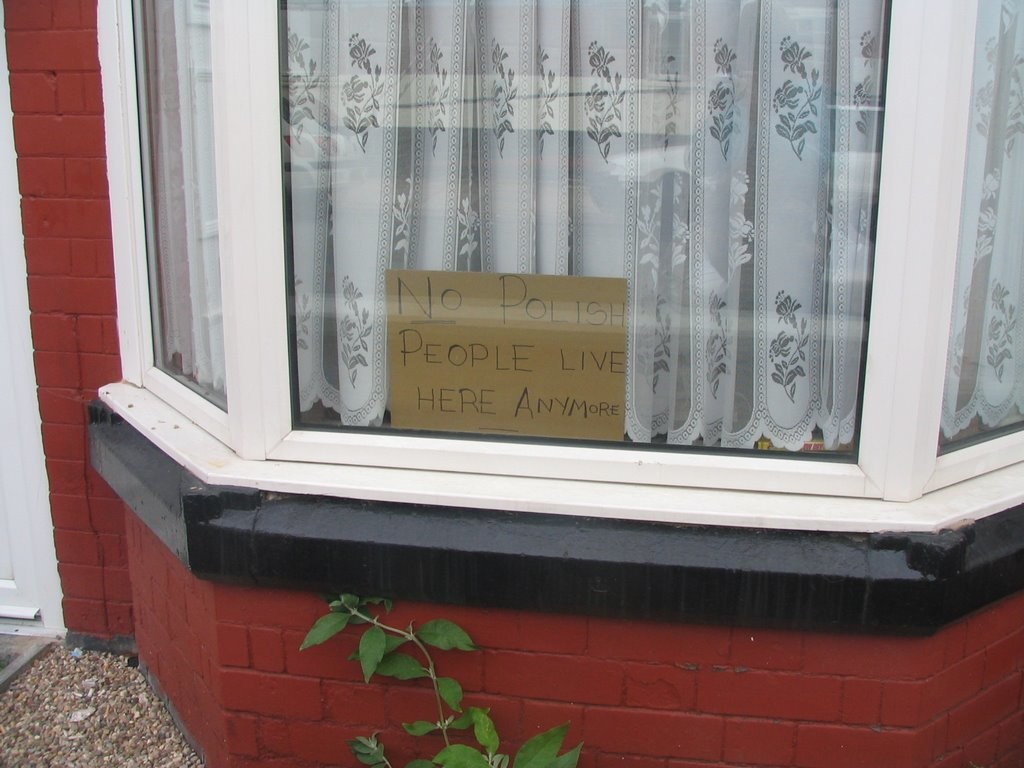 No POLISH
PEOPLE LIVE
HERE ANYMORE